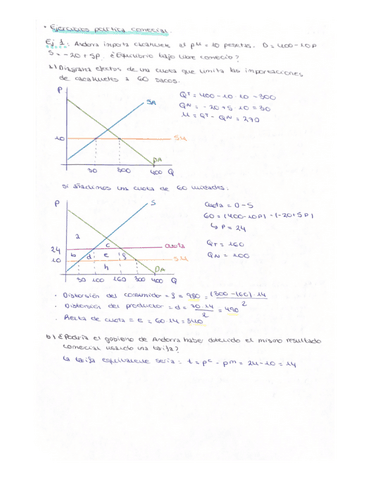 • Ejercicios política comercial
Ej 1: Andorra importa cacahuetes, el pM = 10 pesetas. D = 400 - 10P
S = -20 + 5P. ¿Equilibrio bajo libre comercio?
a) Diagrama efectos de una cuota que limita las importaciones
de cacahuetes a 60 sacos.
P
SA
10
SM
30
300
400
Q
DA
QT = 400 - 10 · 10 = 300
QN = -20 + 5 · 10 = 30
M = QT - QN = 270
Si añadimos una cuota de 60 unidades.
P
S
2
c
24
cuota
b
d
e
f
10
SM
h
DA
30
100
160
300
400
Q
Cuota = D - S
60 = (400 - 10P) - (-20 + 5P)
P = 24
QT = 160
QN = 100
· Distorsión del consumidor = f = 980 = (300 - 160) · 14 / 2
· Distorsión del productor = d = 70 · 14 / 2 = 490
· Renta de cuota = e = 60 · 14 = 840
b) ¿Podría el gobierno de Andorra haber obtenido el mismo resultado
comercial usando una tarifa?
La tarifa equivalente sería: t = pc - pm = 24 - 10 = 14